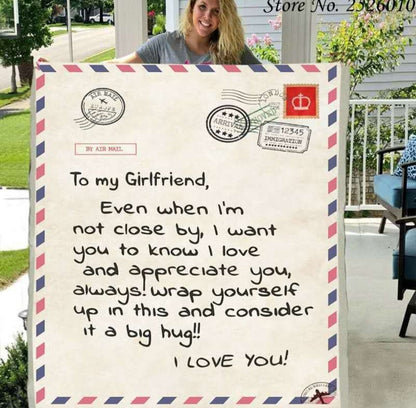 Store No. 2326010
AIR MAIL
LONDON
ARRIVED
12345
IMMIGRATION
BY AIR MAIL
To my Girlfriend,
Even when i'm
not close by, i want
you to know i love
and appreciate you,
always!wrap yourself
up in this and consider
it a big hug!!
i LOVE YOU!